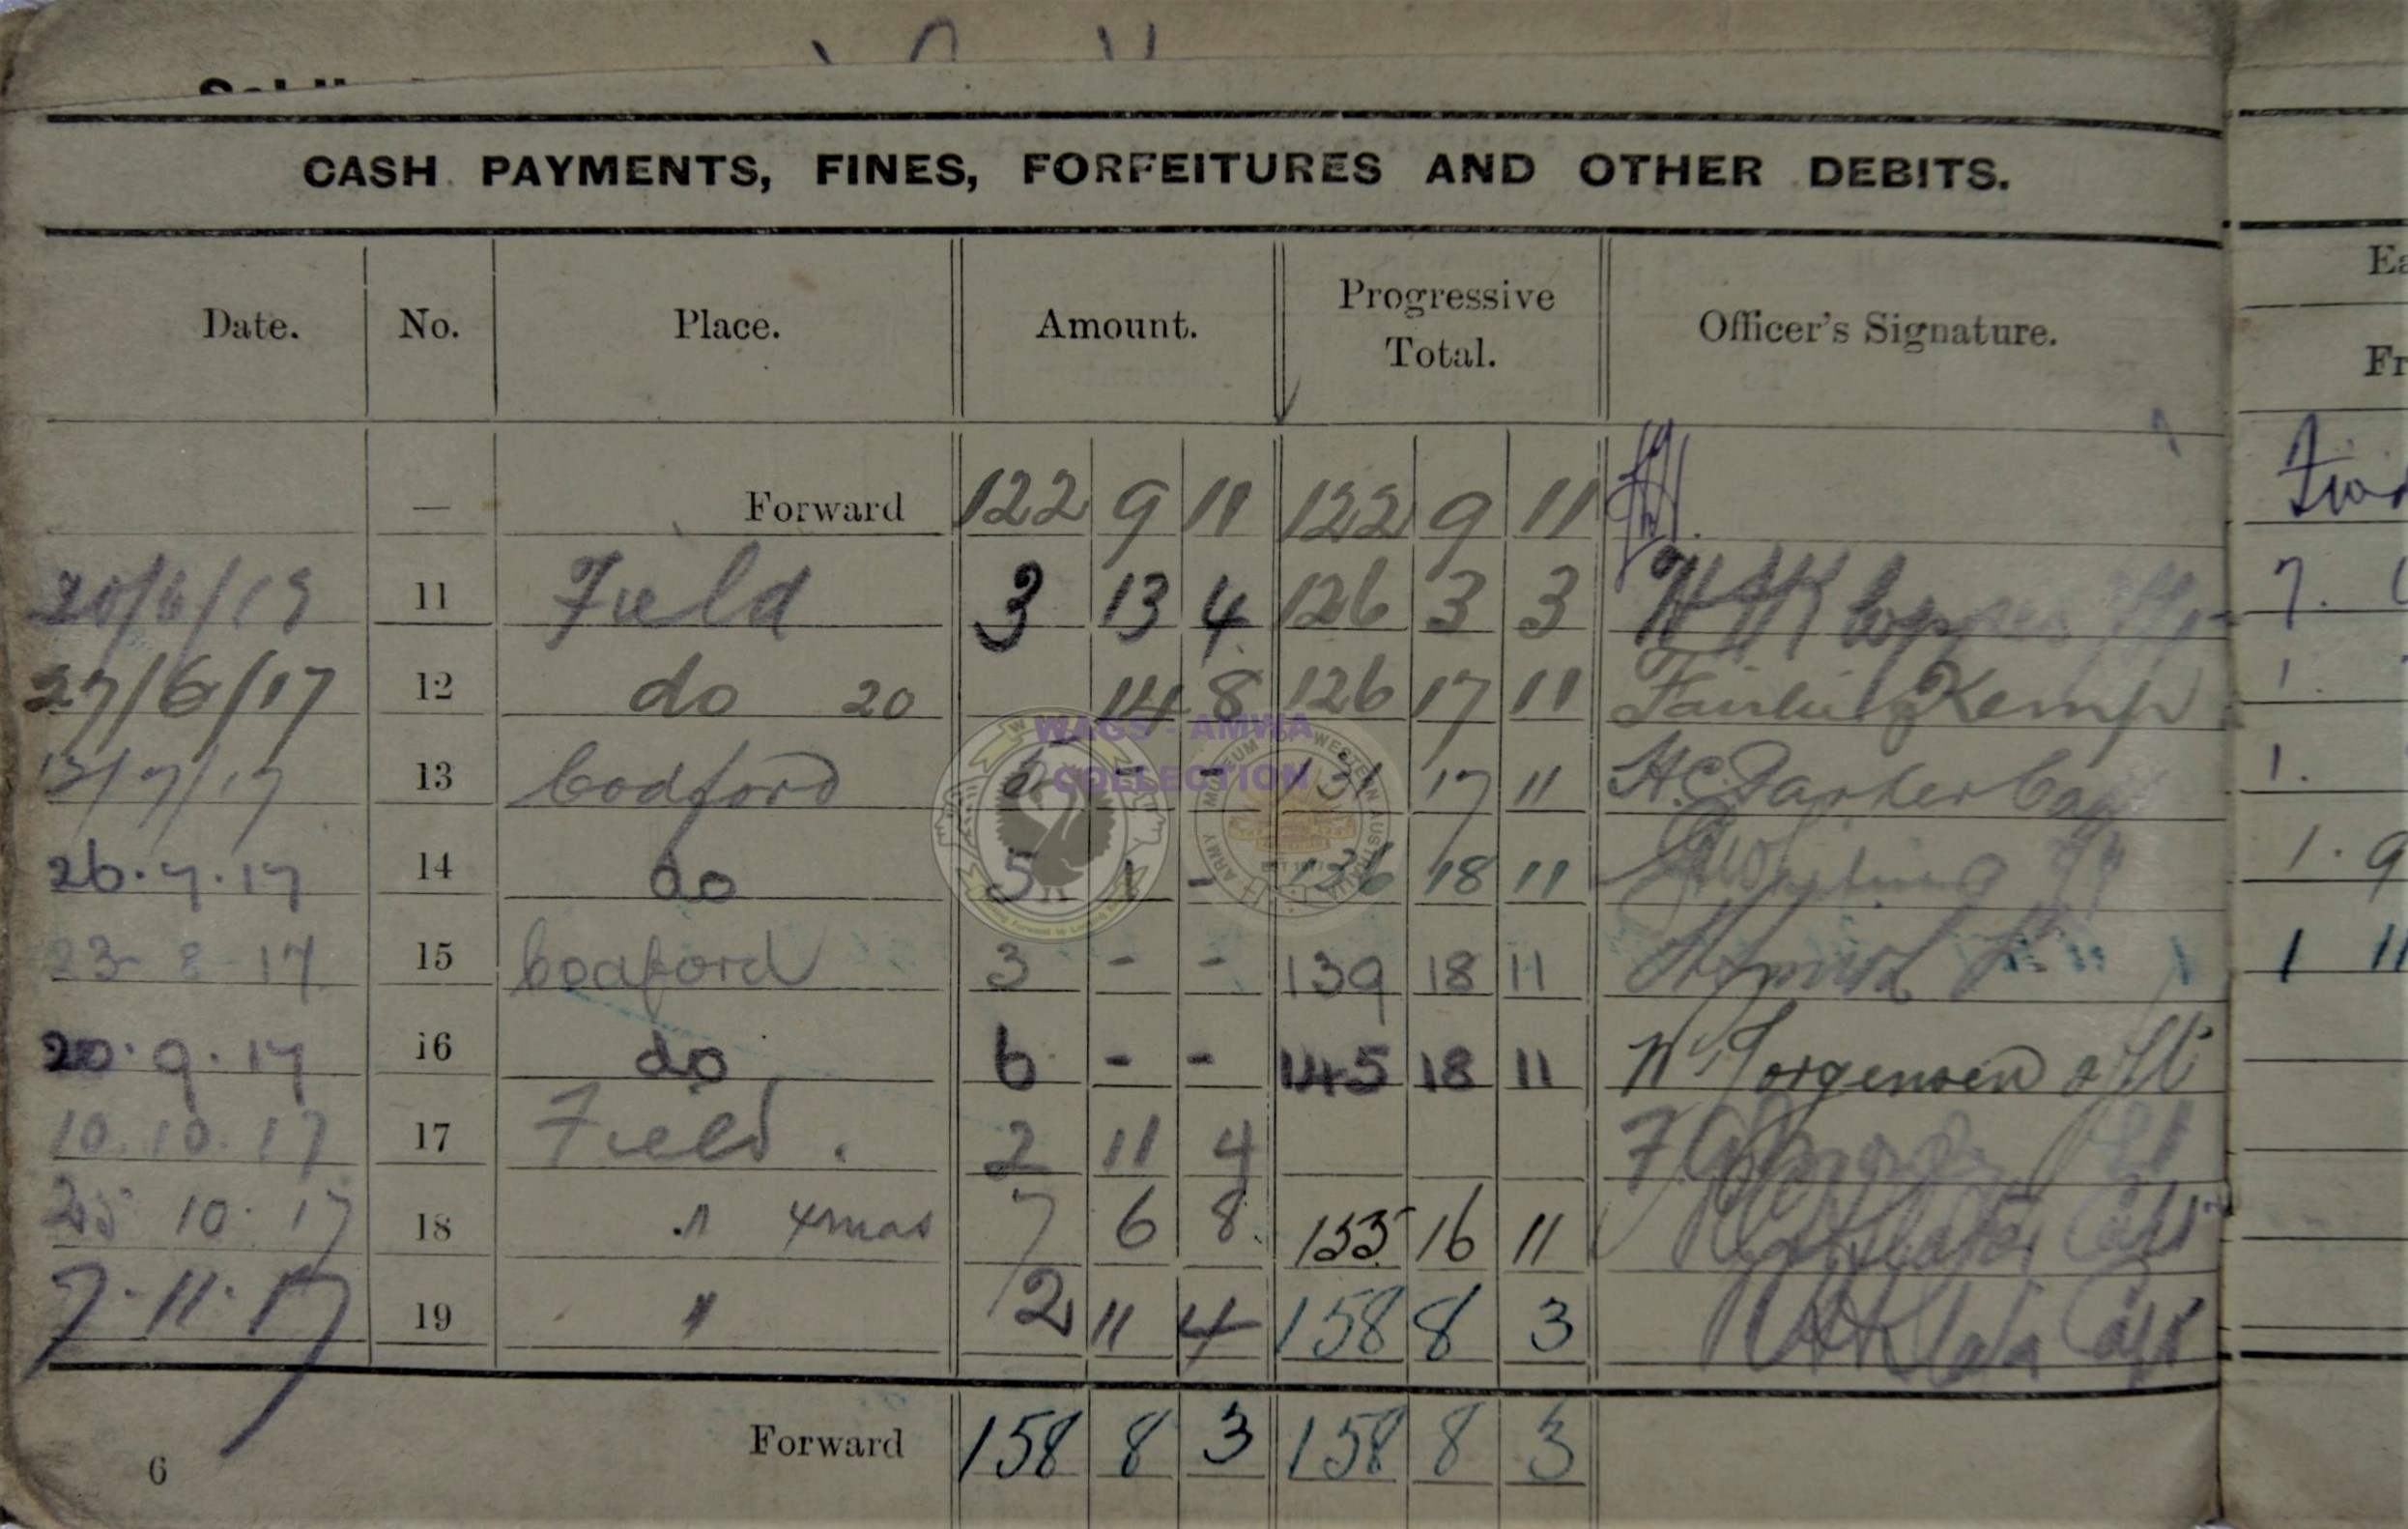 CASH PAYMENTS, FINES, FORFEITURES AND OTHER DEBITS.
Date. No. Place. Amount. Progressive Total. Officer's Signature.
— Forward 122 9 11 122 9 11
20/6/19 11 Field 3 13 4 126 3 3
27/6/17 12 do 20 14 8 126 17 11 Kemp
13/7/17 13 Codford - - 131 17 11 H.C. Parker Capt
26.7.17 14 do 5 1 - 136 18 11
23-8-17 15 Codford 3 - - 139 18 11
20.9.17 16 do 6 - - 145 18 11 Jorgensen 2/Lt
10.10.17 17 Field. 2 11 4
25 10.17 18 " xmas 7 6 8 155 16 11 Capt
7.11.17 19 " 2 11 4 158 8 3 Capt
Forward 158 8 3 158 8 3
6
WAGS - AMWA
COLLECTION
ARMY MUSEUM WESTERN AUSTRALIA
Ea
Fr
7.
1.
1.
1.9
1 11